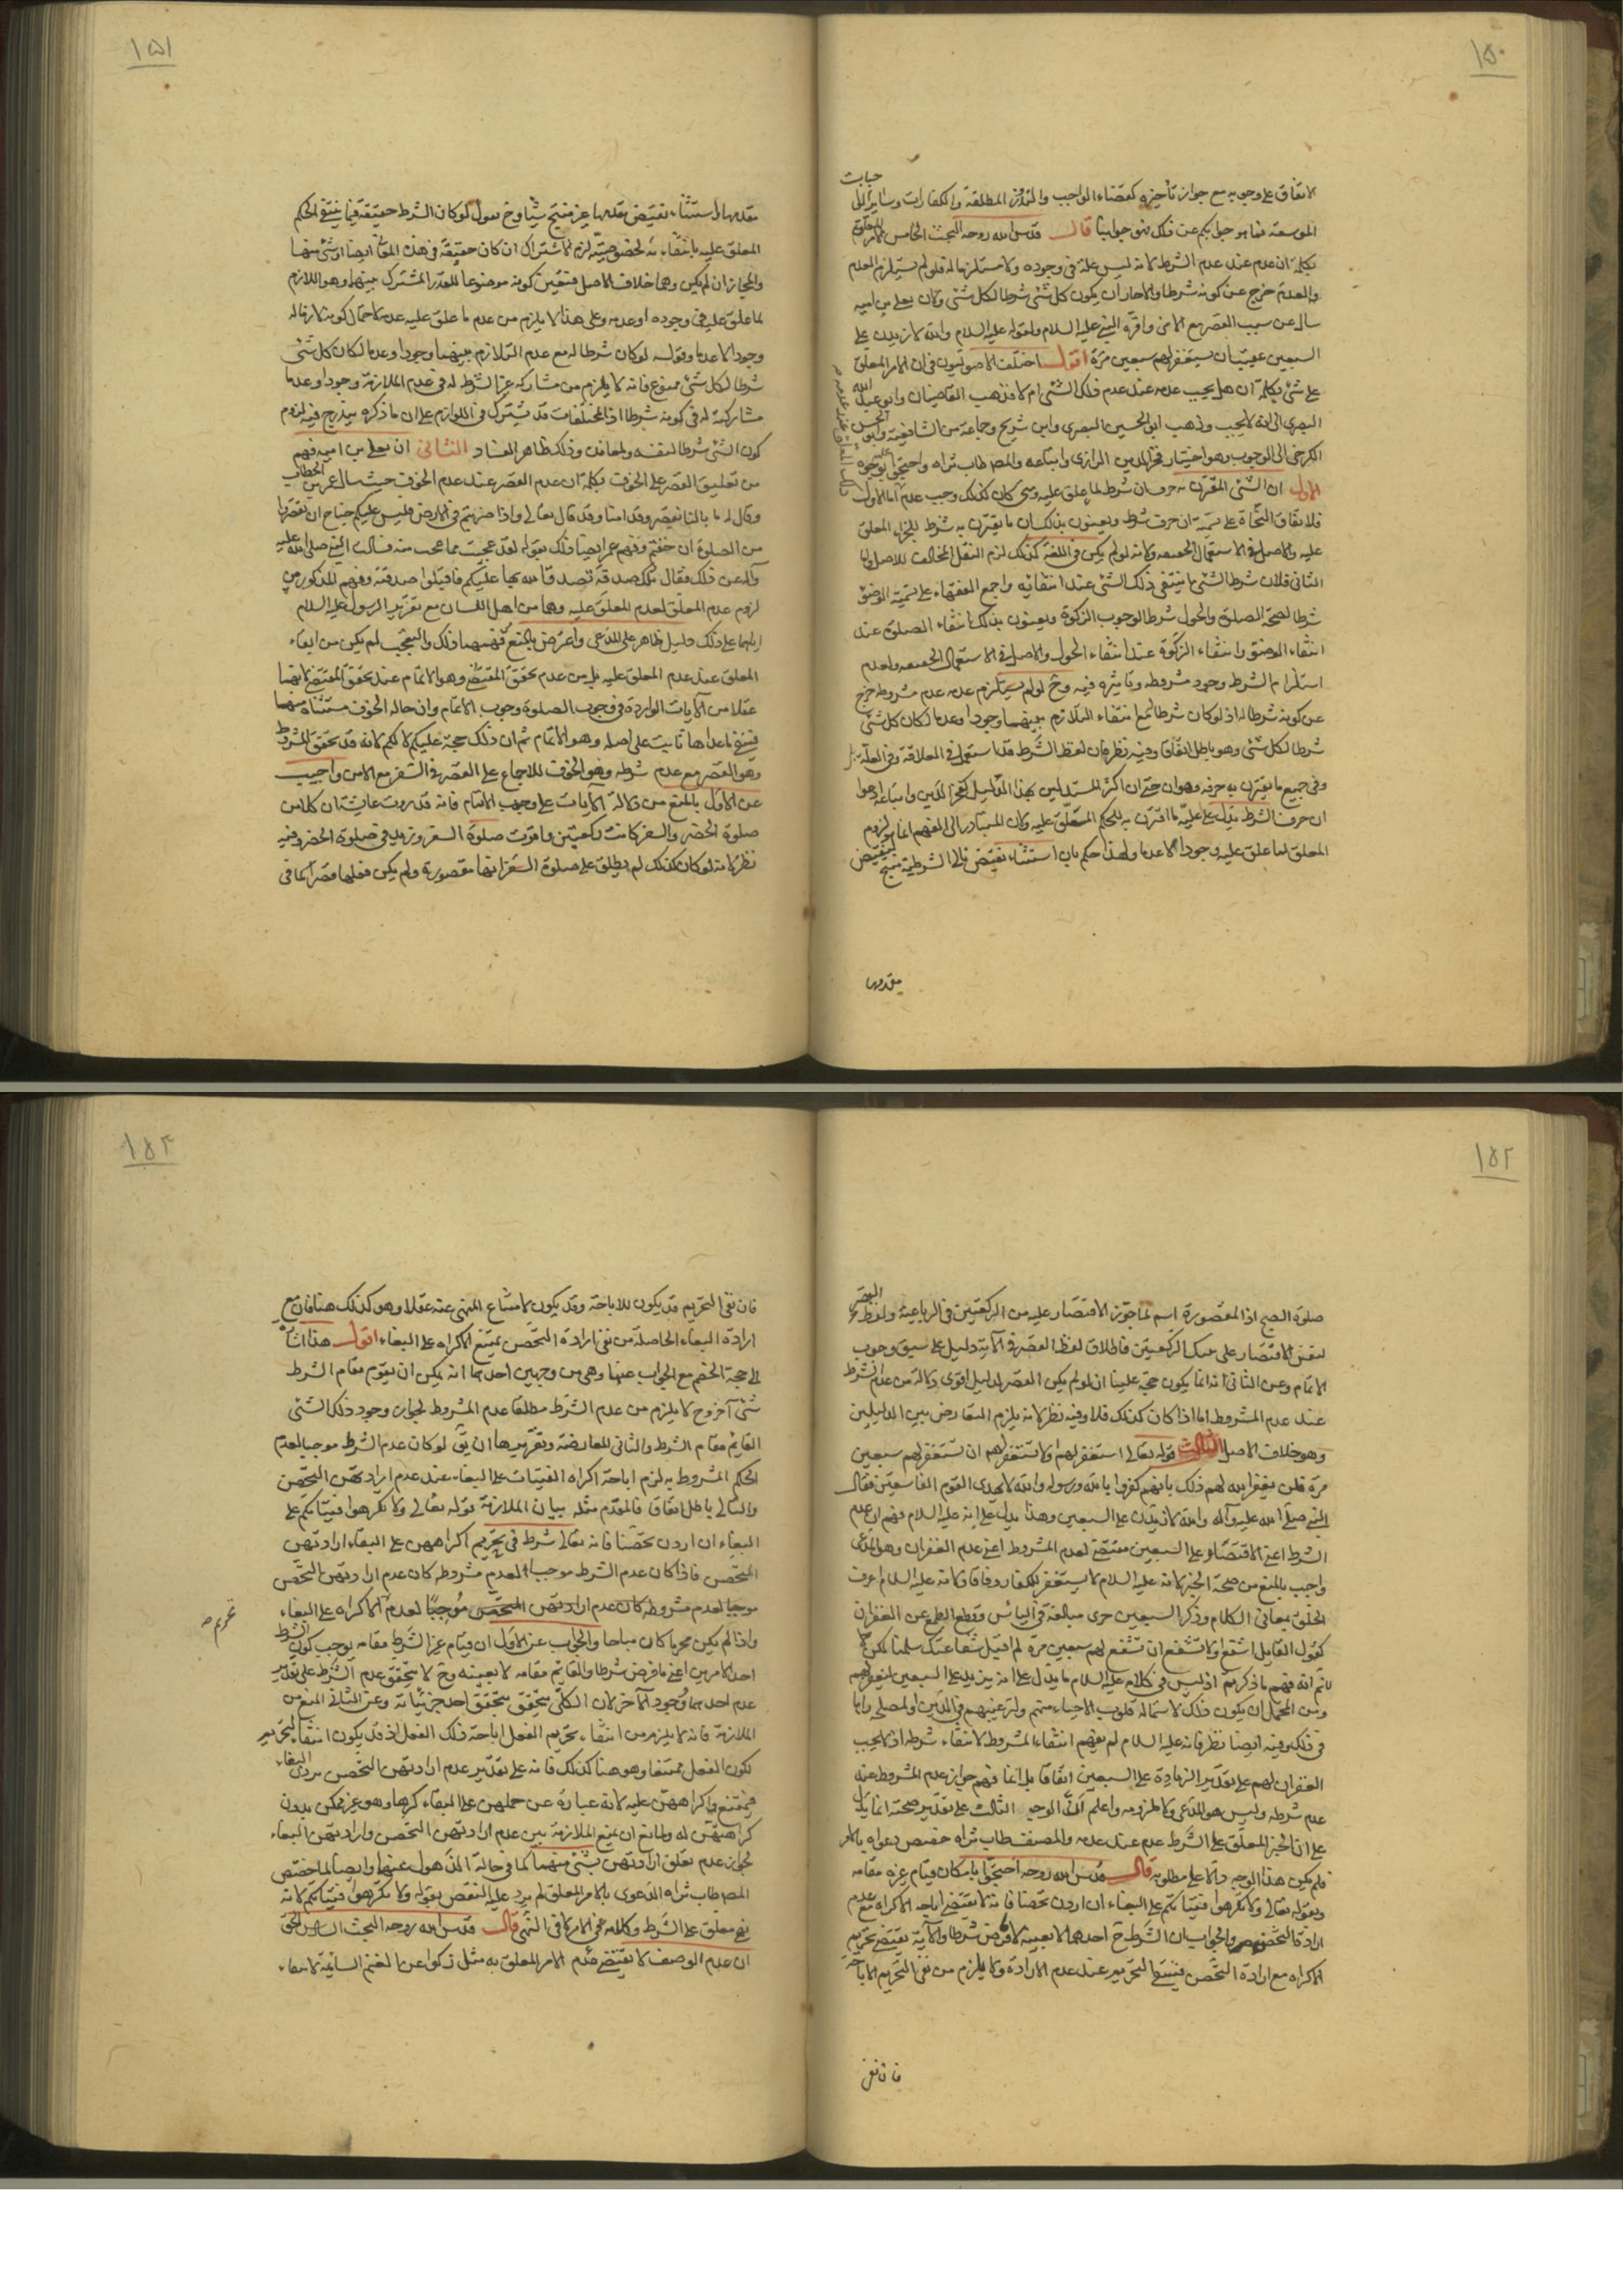 ١٥٠
الاتفاق على وجوبه مع جواز تأخيره كقضاء الواجب والنذر المطلقة والكفارات وساير
الموسعة فما هو جوابكم عن ذلك فهو جوابنا قال قدس الله روحه البحث الخامس الامر المعلق
بكلمة ان عدم عند عدم الشرط لانه ليس علة في وجوده ولا مستلزما له فلو لم يستلزم العدم
والعدم خرج عن كونه شرطا والا جاز ان يكون كل شئ شرطا لكل شئ ولان يعلى بن اميه
سال عن سبب القصر مع الامن واقره النبي عليه السلام ولقوله عليه السلام والله لازيدن على
السبعين عقيب ان تستغفر لهم سبعين مرة اقول اختلف الاصوليون في ان الامر المعلق
على شئ بكلمة ان هل يجب عدمه عند عدم ذلك الشئ ام لا فذهب القاضيان وابو عبد الله
البصرى الى انه لا يجب وذهب ابو الحسين البصرى وابن شريح وجماعة من الشافعية وابو الحسن
الكرخى الى الوجوب وهو اختيار فخر الدين الرازى واتباعه والمصه طاب ثراه واحتجوا عليه بوجوه
الاول ان الشئ المقترن به حرف ان شرط لما علق عليه ومتى كان كذلك وجب عدم اما الاول
فلاتفاق النحاة على تسمية ان حرف شرط ويعنون بذلك ان ما يقترن به شرط للجزاء المعلق
عليه والاصل في الاستعمال الحقيقه ولانه لو لم يكن في اللغة كذلك لزم النقل المخالف للاصل واما
الثانى فلان شرط الشئ ما ينتفى ذلك الشئ عند انتفائه واجمع الفقهاء على تسمية الوضوء
شرطا لصحة الصلوة والحول شرطا لوجوب الزكوة ويعنون بذلك انتفاء الصلوة عند
انتفاء الوضوء وانتفاء الزكوة عند انتفاء الحول والاصل في الاستعمال الحقيقه ولعدم
استلزام الشرط وجود مشروطه وتاثيره فيه وح لو لم يستلزم عدمه عدم مشروطه خرج
عن كونه شرطا له اذ لو كان شرطا مع انتفاء التلازم بينهما وجودا وعدما لكان كل شئ
شرطا لكل شئ وهو باطل اتفاقا وفيه نظر فان لفظ الشرط قد استعمل في العلاقة وفي العلة
وفي جميع ما يقترن به حرفه وهو ان حتى ان اكثر المستدلين بهذا الدليل كفخر الدين واتباعه ادعوا
ان حرف الشرط يدل على علية ما اقترن به للحكم المتعلق عليه ولان المتبادر الى الفهم انما هو لزوم
المعلق لما علق عليه وجودا لا عدما ولهذا حكم بان استثناء نقيض تالى الشرطية منتج لنقيض
مقدمها
١٥١
مقدمها واستثناء نقيض مقدمها غير منتج شيأ وح نقول لو كان الشرط حقيقة فيما ينتفى الحكم
المعلق عليه بانتفائه لخصوصيته لزم الاشتراك ان كان حقيقة في هذه المعانى ايضا او شئ منها
والمجاز ان لم يكن وهما خلاف الاصل فتعين كونه موضوعا للقدر المشترك بينها وهو اللازم
لما علق عليه في وجوده او عدمه وعلى هذا لا يلزم من عدم ما علق عليه عدمه لاحتمال كونه لازما له
وجودا لا عدما وقوله لو كان شرطا له مع عدم التلازم بينهما وجودا وعدما لكان كل شئ
شرطا لكل شئ ممنوع فانه لا يلزم من مشاركة غير الشرط له في عدم الملازمة وجودا وعدما
مشاركته له في كونه شرطا اذ المختلفات قد تشترك في اللوازم على ان ما ذكره يندرج فيه لزوم
كون الشئ شرطا لنفسه ولمعانده وذلك ظاهر الفساد الثانى ان يعلى بن اميه فهم
من تعليق القصر على الخوف بكلمة ان عدم القصر عند عدم الخوف حيث سال عمر بن الخطاب
وقال له ما بالنا نقصر وقد امنا وقد قال تعالى واذا ضربتم في الارض فليس عليكم جناح ان تقصروا
من الصلوة ان خفتم وفهم عمر ايضا ذلك بقوله لقد عجبت مما عجبت منه فسالت النبى صلى الله عليه
وآله عن ذلك فقال تلك صدقة تصدق الله بها عليكم فاقبلوا صدقته وفهم المذكورين
لزوم عدم المعلق لعدم المعلق عليه وهما من اهل اللسان مع تقرير الرسول عليه السلام
اياهما على ذلك دليل ظاهر على المدعى واعترض بالمنع من فهمهما ذلك والتعجب لم يكن من ابقاء
المعلق عند عدم المعلق عليه بل من عدم تحقق المقتضى وهو الاتمام عند تحقق المقتضى لانهما
عقلا من الآيات الواردة في وجوب الصلوة وجوب الاتمام وان حالة الخوف مستثناة منها
فبقى ما عداها ثابت على اصله وهو الاتمام ثم ان ذلك حجة عليكم لا لكم لانه قد تحقق المشروط
وهو القصر مع عدم شرطه وهو الخوف للاجماع على القصر في السفر مع الامن واجيب
عن الاول بالمنع من دلالة الآيات على وجوب الاتمام فانه قد روت عايشة ان كلا من
صلوة الحضر والسفر كانت ركعتين فاقرت صلوة السفر وزيد في صلوة الحضر وفيه
نظر لانه لو كان كذلك لم يطلق على صلوة السفر انها مقصورة ولم يكن فعلها قصرا كما في
١٥٢
صلوة الصبح اذ المقصورة اسم لما جوز الاقتصار عليه من الركعتين في الرباعية ولفظ القصر
لنفس الاقتصار على تلك الركعتين فاطلاق لفظ القصر في الآية دليل على سبق وجوب
الاتمام وعن الثانى انه انما يكون حجة علينا ان لو لم يكن القصر لدليل اقوى دلالة من عدم الشرط
عند عدم المشروط اما اذا كان كذلك فلا وفيه نظر لانه يلزم التعارض بين الدليلين
وهو خلاف الاصل الثالث قوله تعالى استغفر لهم او لا تستغفر لهم ان تستغفر لهم سبعين
مرة فلن يغفر الله لهم ذلك بانهم كفروا بالله ورسوله والله لا يهدى القوم الفاسقين فقال
النبى صلى الله عليه وآله والله لازيدن على السبعين وهذا يدل على انه عليه السلام فهم ان عدم
الشرط اعنى الاقتصار على السبعين مقتضى لعدم المشروط اعنى عدم الغفران وهو المدعى
واجيب بالمنع من صحة الخبر لانه عليه السلام لا يستغفر للكفار وفاقا ولانه عليه السلام اعرف
الخلق بمعانى الكلام وذكر السبعين جرى مبالغة في الياس وقطع الطمع عن الغفران
كقول القايل اشفع او لا تشفع ان تشفع لهم سبعين مرة لم اقبل شفاعتك سلمنا لكن لا
نم انه فهم ما ذكرتم اذ ليس في كلامه عليه السلام ما يدل على انه يزيد على السبعين ليغفر لهم
ومن المحتمل ان يكون ذلك لاستمالة قلوب الاحياء منهم ولترغيبهم في الدين ولمصلحة راها
في ذلك وفيه ايضا نظر فانه عليه السلام لم يفهم انتفاء المشروط لانتفاء شرطه اذ لا يجب
الغفران لهم على تقدير الزيادة على السبعين اتفاقا بل انما فهم جواز عدم المشروط عند
عدم شرطه وليس هو المدعى ولا ملزومه واعلم ان الوجه الثالث على تقدير صحته انما يدل
على ان الخبر المعلق على الشرط عدم عند عدمه والمصنف طاب ثراه خصص دعواه بالامر
فلم يكن هذا الوجه دالا على مطلوبه قال قدس الله روحه احتجوا بامكان قيام غيره مقامه
وبقوله تعالى ولا تكرهوا فتياتكم على البغاء ان اردن تحصنا فانه لا يقتضى اباحة الاكراه مع عدم
ارادة التحصن والجواب ان الشرط ح احدهما لا بعينه لا ما فرض شرطا والآية تقتضى تحريم
الاكراه مع ارادة التحصن فينتفى التحريم عند عدم الارادة ولا يلزم من نفى التحريم الاباحة
فان نفى
١٥٣
فان نفى التحريم قد يكون للاباحة وقد يكون لامتناع المنهى عنه عقلا وهو كذلك هنا فان مع
ارادة البغاء الحاصلة من نفى ارادة التحصن يمتنع الاكراه على البغاء اقول هذا اشارة
الى حجة الخصم مع الجواب عنها وهى من وجهين احدهما انه يمكن ان يقوم مقام الشرط
شئ آخر وح لا يلزم من عدم الشرط مطلقا عدم المشروط لجواز وجود ذلك الشئ
القايم مقام الشرط والثانى المعارضة وتقريرها ان يق لو كان عدم الشرط موجبا لعدم
الحكم المشروط به لزم اباحة اكراه الفتيات على البغاء عند عدم ارادتهن التحصن
والتالى باطل اتفاقا فالمقدم مثله بيان الملازمة قوله تعالى ولا تكرهوا فتياتكم على
البغاء ان اردن تحصنا فانه تعالى شرط في تحريم اكراههن على البغاء ارادتهن
التحصن فاذا كان عدم الشرط موجبا لعدم مشروطه كان عدم ارادتهن التحصن
موجبا لعدم مشروطه كان عدم ارادتهن التحصن موجبا لعدم الاكراه على البغاء
تحريم صه
واذا لم يكن محرما كان مباحا والجواب عن الاول ان قيام غير الشرط مقامه يوجب كون الشرط
احد الامرين اعنى ما فرض شرطا والقايم مقامه لا بعينه وح لا يتحقق عدم الشرط على تقدير
عدم احدهما وجود الآخر لان الكلى يتحقق بتحقق احد جزئياته وعن الثانى المنع من
الملازمة فانه لا يلزم من انتفاء تحريم الفعل اباحة ذلك الفعل اذ قد يكون انتفاء التحريم
لكون الفعل ممتنعا وهو هنا كذلك فانه على تقدير عدم ارادتهن التحصن يردن البغاء
فيمتنع اكراههن عليه لانه عبارة عن حملهن على البغاء كرها وهو غير ممكن بدون
كراهتهن له ولمانع ان يمنع الملازمة بين عدم ارادتهن التحصن وارادتهن البغاء
لجواز عدم تعلق ارادتهن بشئ منهما كما في حالة الذهول عنهما وايضا لما خصص
المصه طاب ثراه الدعوى بالامر المعلق لم يرد عليه النقض بقوله ولا تكرهوا فتياتكم لانه
نهى معلق على الشرط وكلامه في الامر لا في النهى قال قدس الله روحه البحث السادس الحق
ان عدم الوصف لا يقتضى عدم الامر المعلق به مثل زكوا عن الغنم السائمة لانتفاء